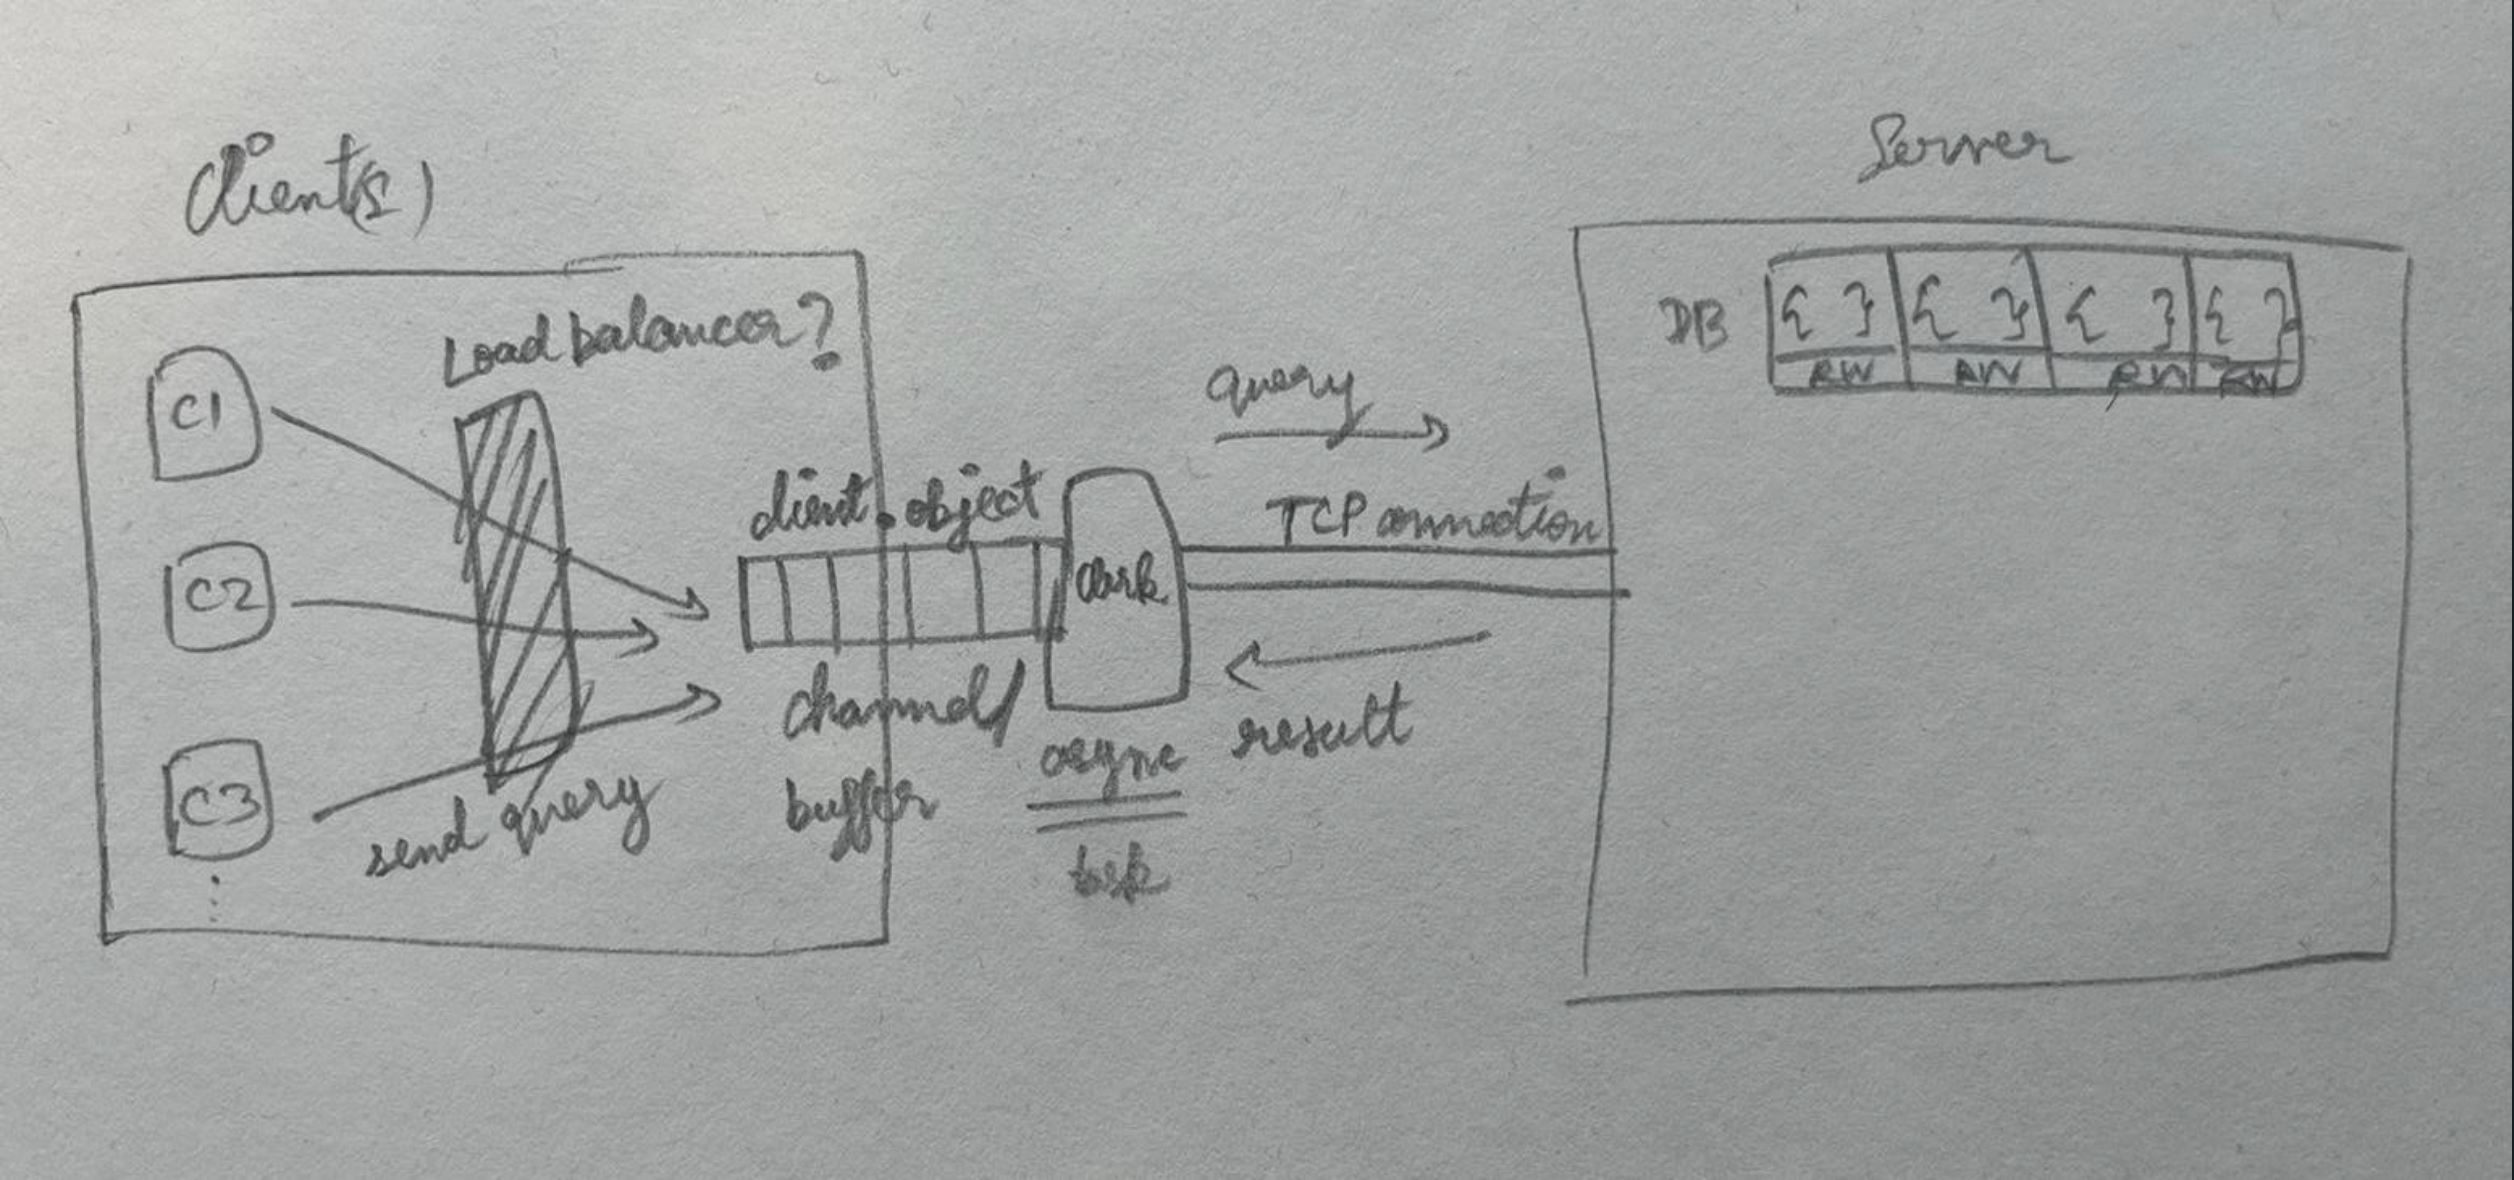 Client(s)
Load balancer?
C1
C2
C3
send query
client object
channel/
buffer
async
task
query
TCP connection
result
Server
DB
{ } { } { } { }
RW RW RW RW